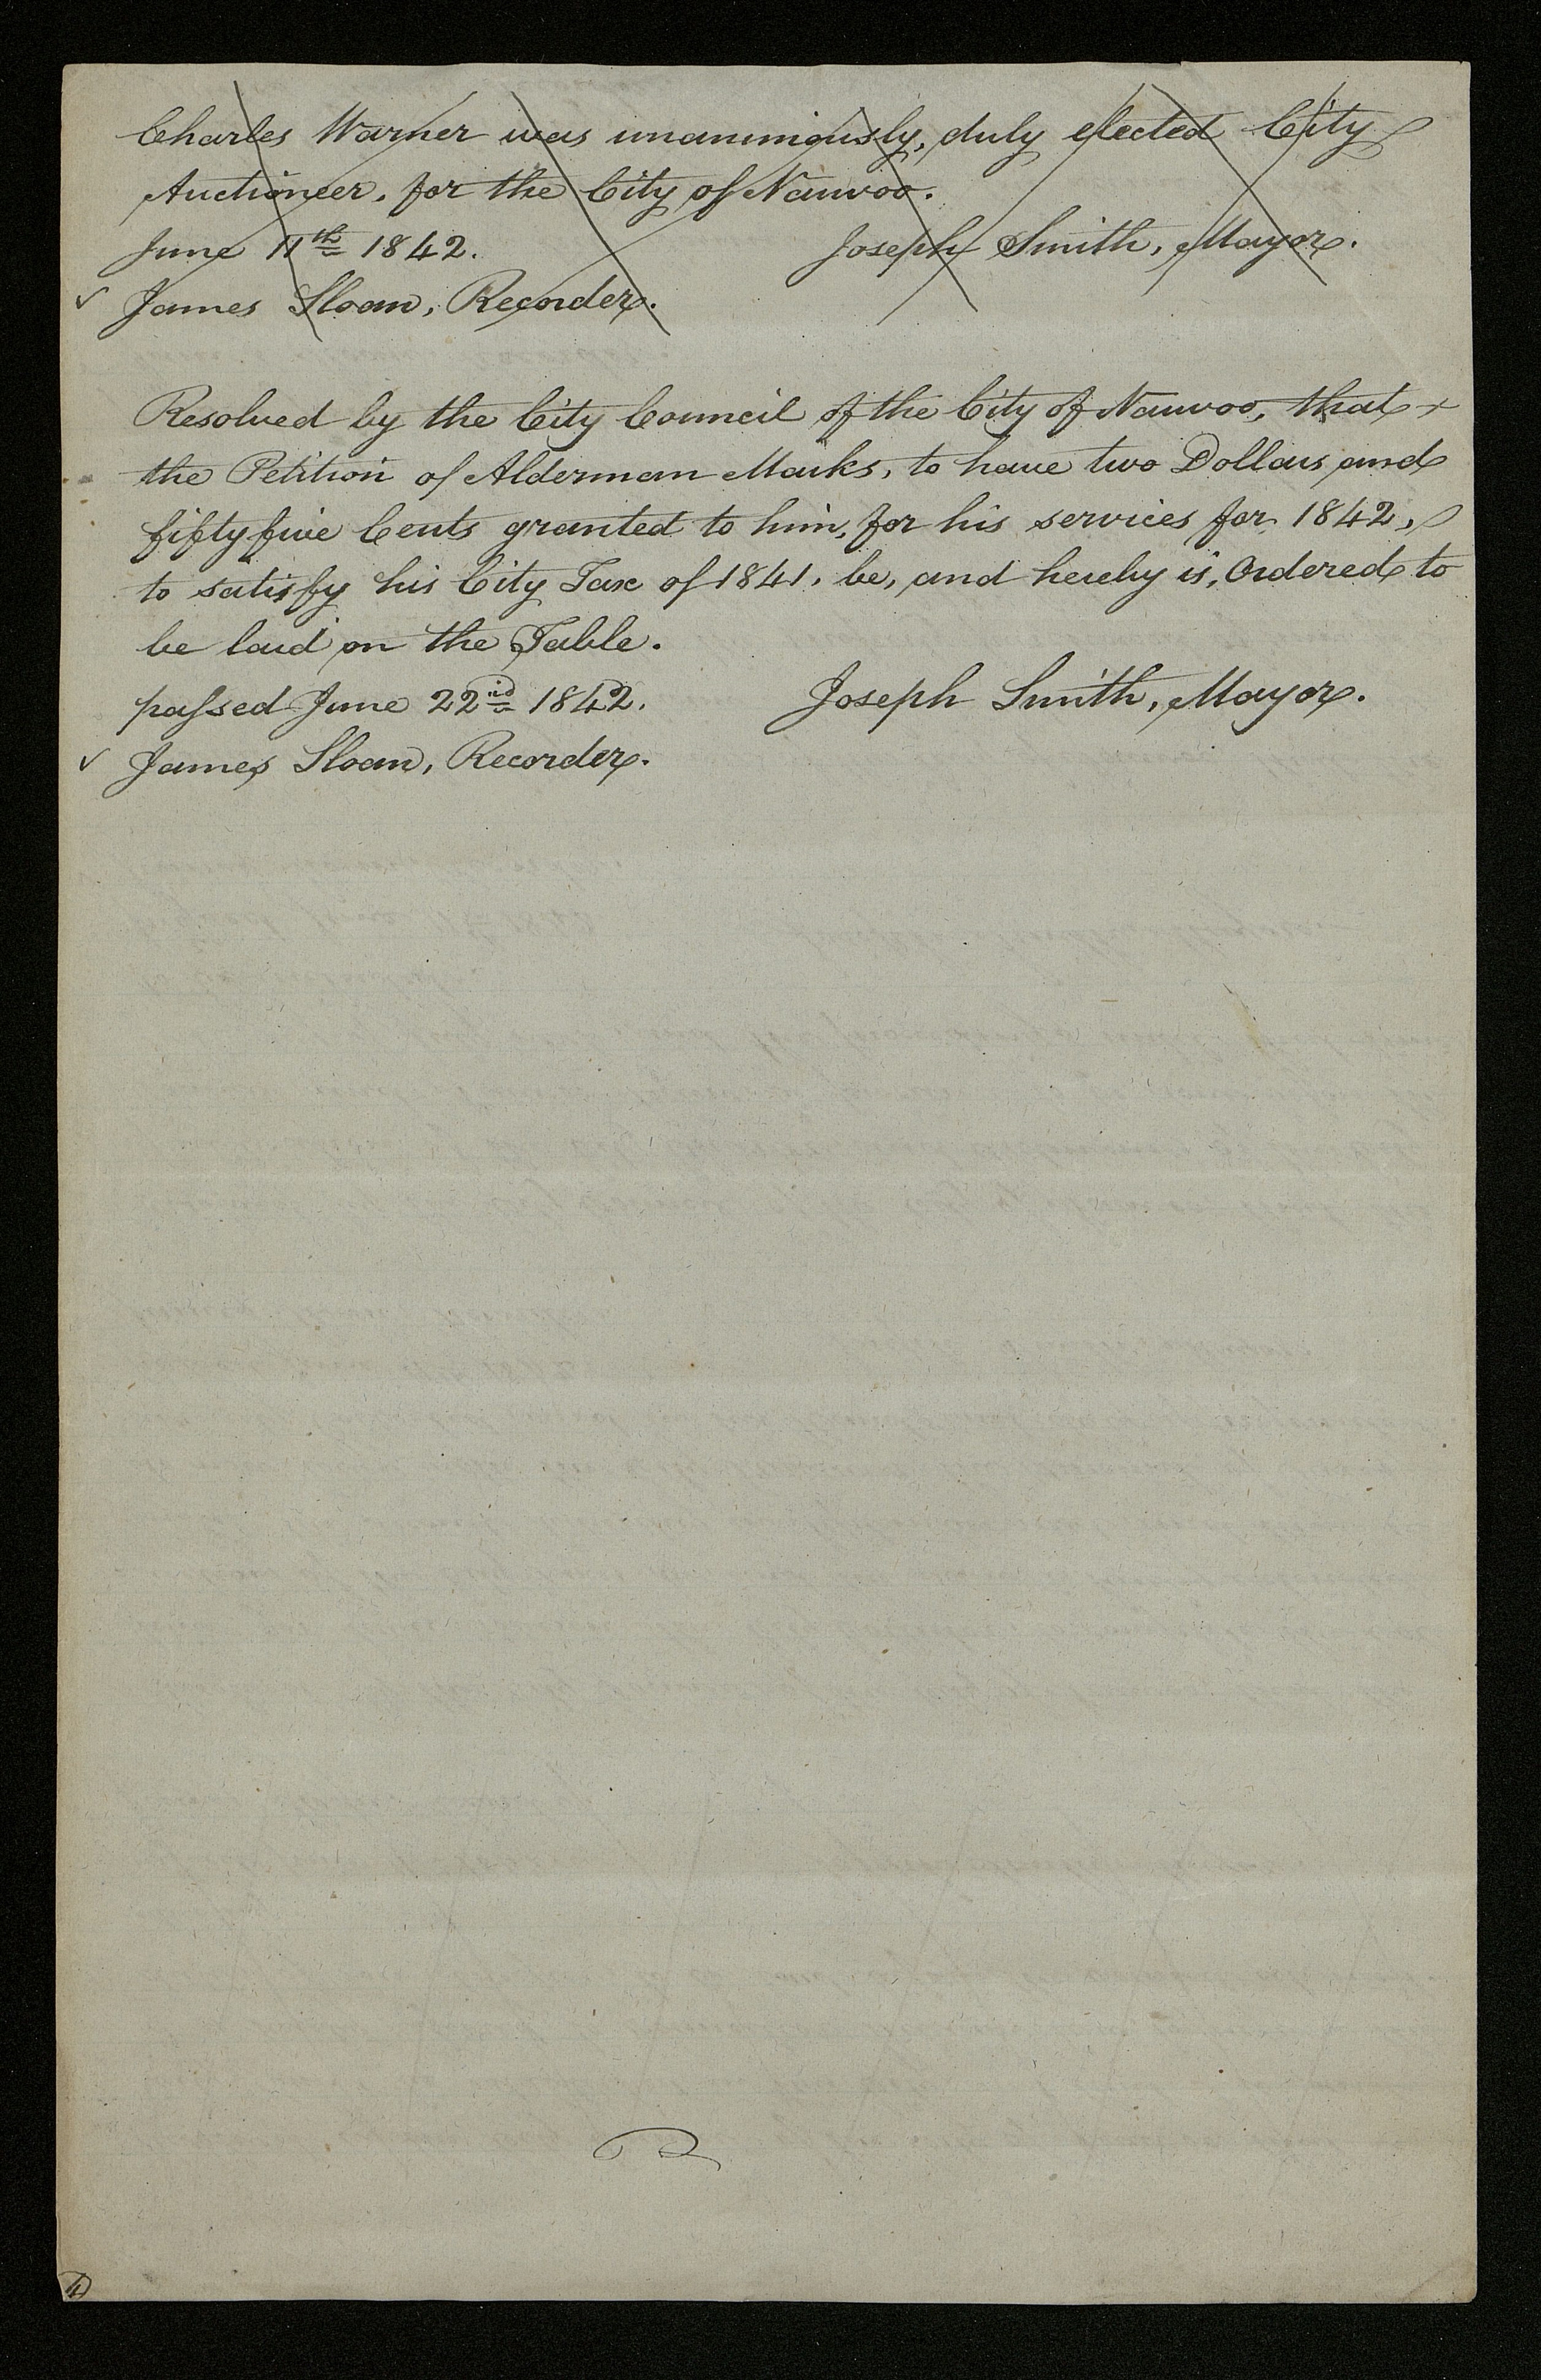 Charles Warner was unanimiously, duly elected City
Auctioneer, for the City of Nauvoo.
June 11th 1842. Joseph Smith, Mayor.
✓ James Sloan, Recorder.
Resolved by the City Council of the City of Nauvoo, that
the Petition of Alderman Marks, to have two Dollars and
fifty five Cents granted to him, for his services for 1842,
to satisfy his City Tax of 1841, be, and hereby is, Ordered to
be laid on the Table.
passed June 22nd 1842. Joseph Smith, Mayor.
✓ James Sloan, Recorder.